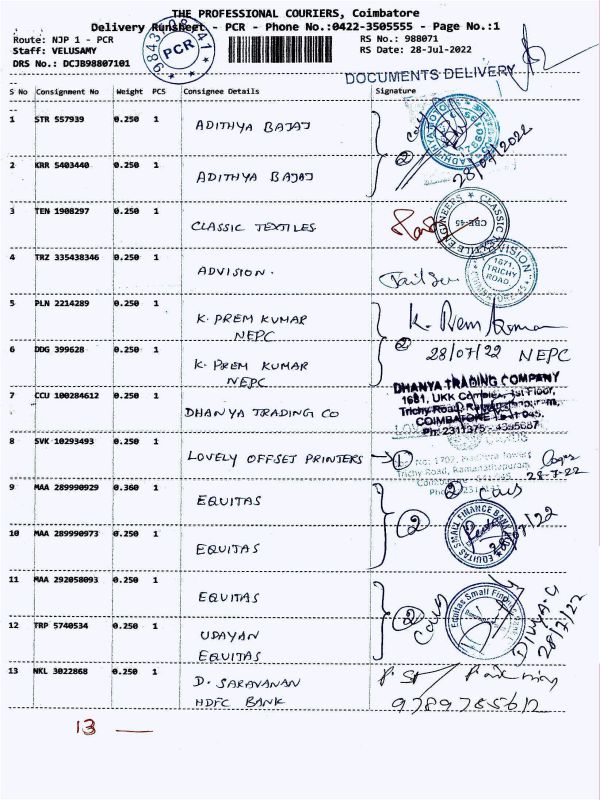 THE PROFESSIONAL COURIERS, Coimbatore
Delivery Runsheet - PCR - Phone No.:0422-3505555 - Page No.:1
Route: NJP 1 - PCR
RS No.: 988071
Staff: VELUSAMY
RS Date: 28-Jul-2022
DRS No.: DCJB98807101
PCR
DOCUMENTS DELIVERY
S No Consignment No Weight PCS Consignee Details Signature
1 STR 557939 0.250 1 ADITHYA BAJAJ
2 KRR 5403440 0.250 1 ADITHYA BAJAJ
2
28/07/2022
3 TEN 1908297 0.250 1 CLASSIC TEXTILES
CBE-45
4 TRZ 335438346 0.250 1 ADVISION.
1671,
TRICHY
ROAD,
5 PLN 2214289 0.250 1 K. PREM KUMAR
NEPC
K. Prem Kumar
6 DDG 399628 0.250 1 K. PREM KUMAR
NEPC
2 28/07/22 NEPC
7 CCU 100284612 0.250 1 DHANYA TRADING CO
DHANYA TRADING COMPANY
1681, UKK Complex, 1st Floor,
Trichy Road, Ramanathapuram,
COIMBATORE
8 SVK 10293493 0.250 1 LOVELY OFFSET PRINTERS
1
Trichy Road, Ramanathapuram,
28-7-22
9 MAA 289990929 0.360 1 EQUITAS
10 MAA 289990973 0.250 1 EQUITAS
2
EQUITAS SMALL FINANCE BANK
11 MAA 292058093 0.250 1 EQUITAS
12 TRP 5740534 0.250 1 UDAYAN
EQUITAS
2
Equitas Small
DIVYA.G
28/7/22
13 NKL 3022868 0.250 1 D. SARAVANAN
HDFC BANK
13 —